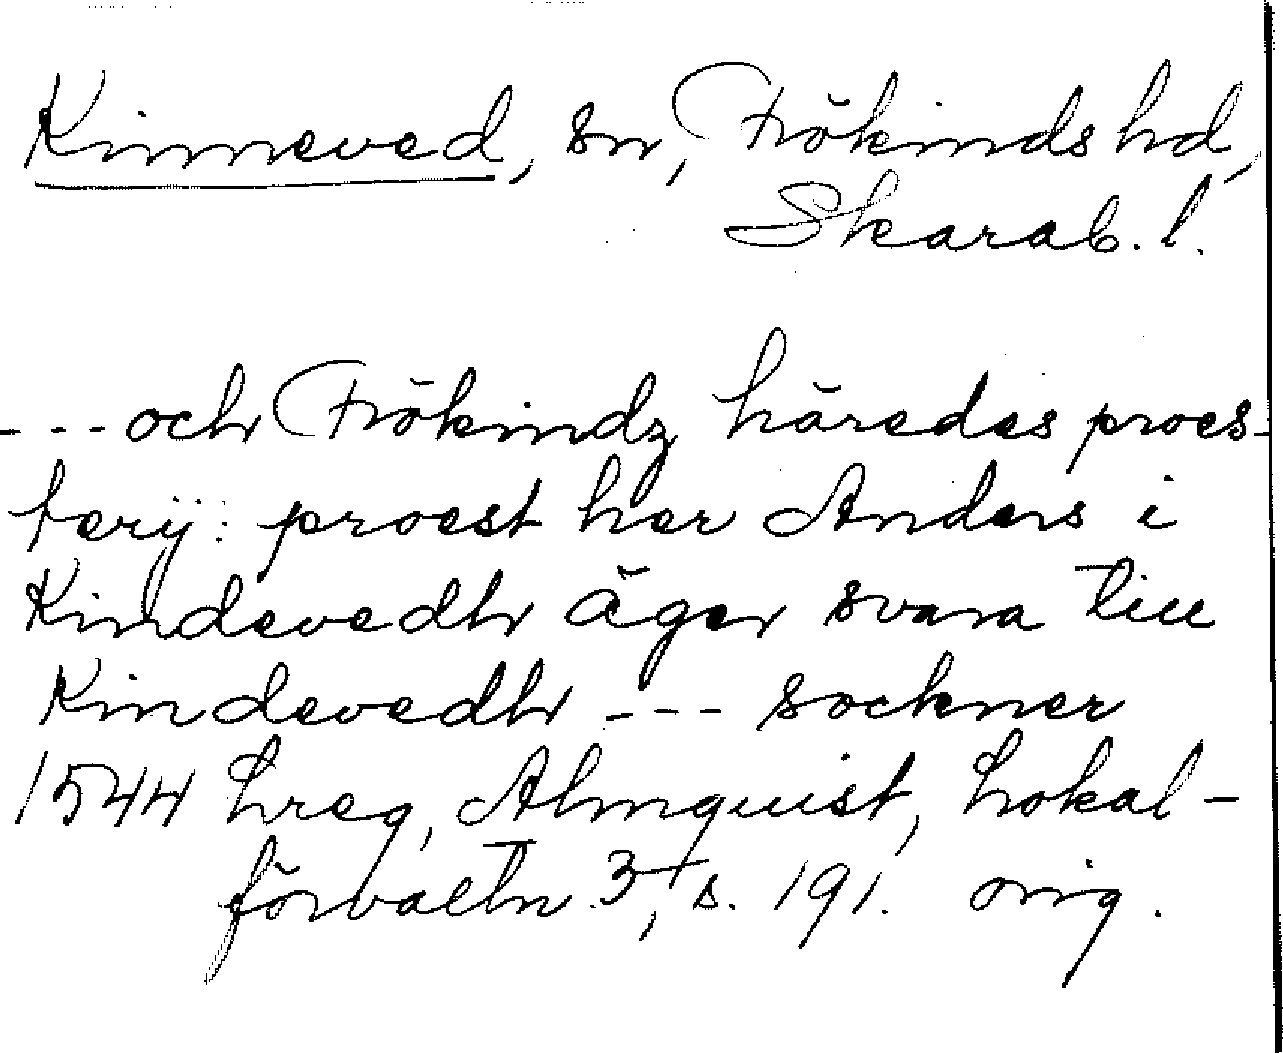 Kinneved, sn, Frökinds hd,
Skarab. l.
--- och Frökindz häredes proes-
terij: proest her Anders i
Kindevedh äger svara till
Kindevedh --- sockner
1544 Lreg, Almquist, Lokal-
förvaltn. 3, s. 191. orig.